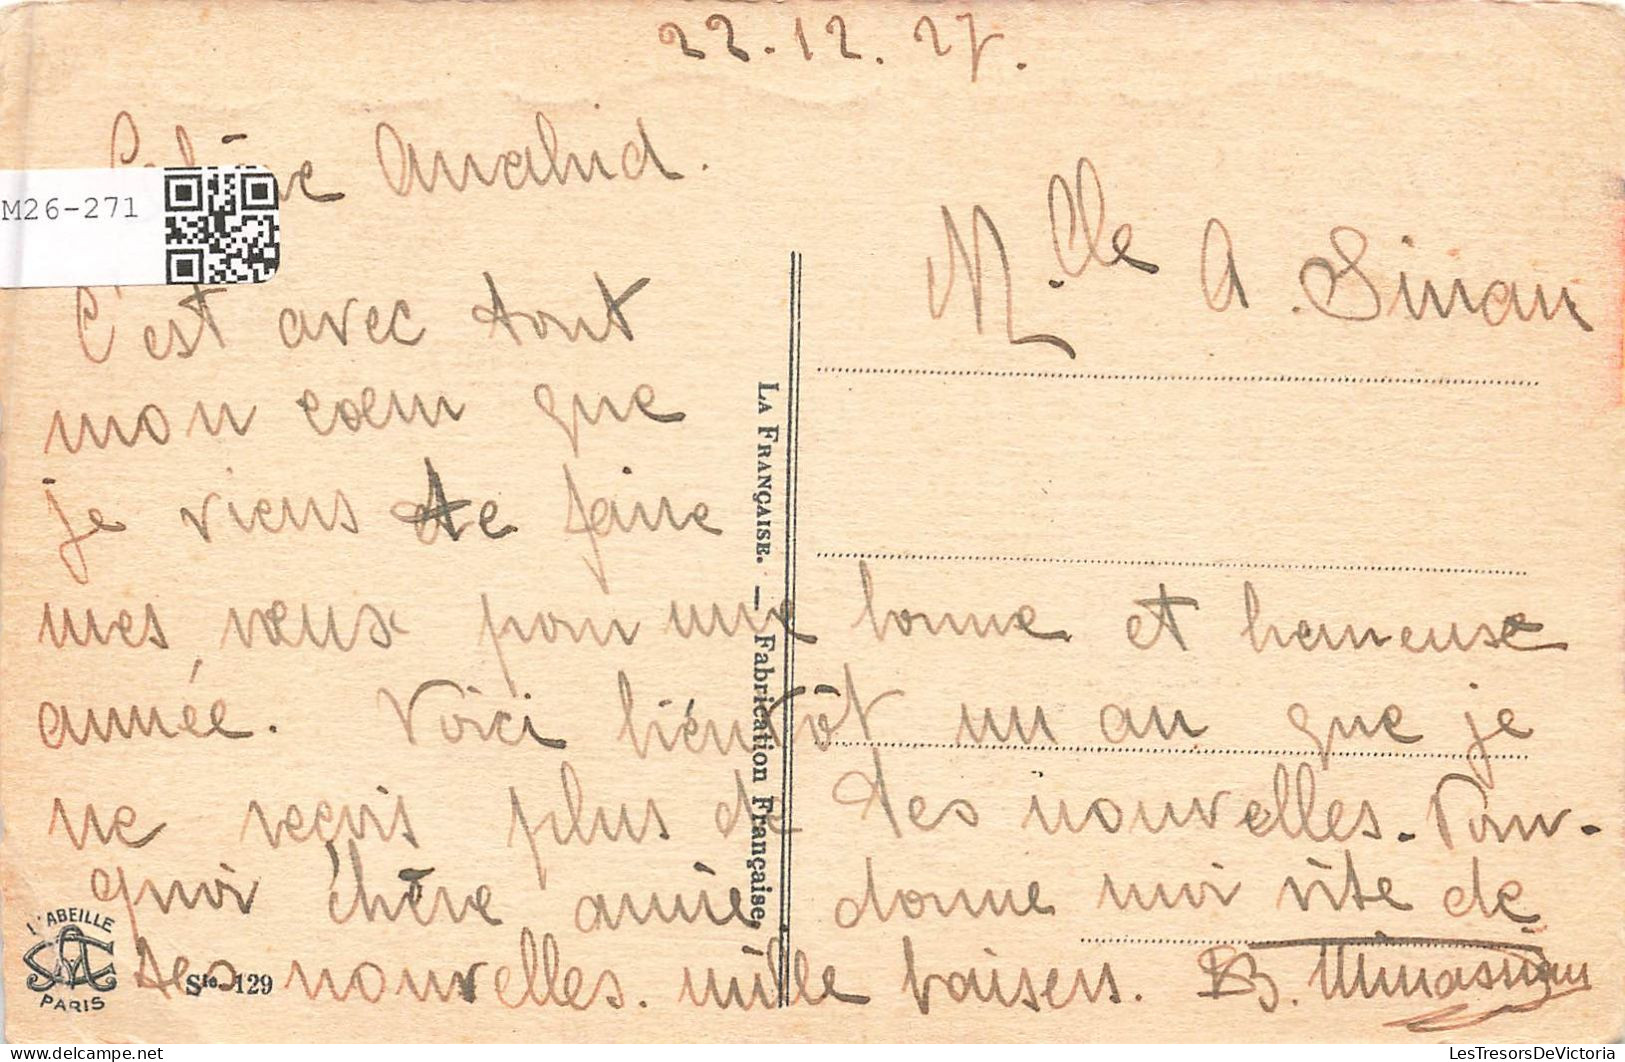 22.12.27.
Chère Anahid.
M26-271
Mlle A. Sinan
C'est avec tout
mon cœur que
je viens de faire
mes vœux pour une bonne et heureuse
année. Voici bientôt un an que je
ne reçois plus de tes nouvelles. Pour-
quoi chère amie, donne moi vite de
tes nouvelles. mille baisers. B. Minassian
LA FRANÇAISE. — Fabrication Française.
L'ABEILLE
PARIS
Sie 129
LesTresorsDeVictoria
delcampe.net